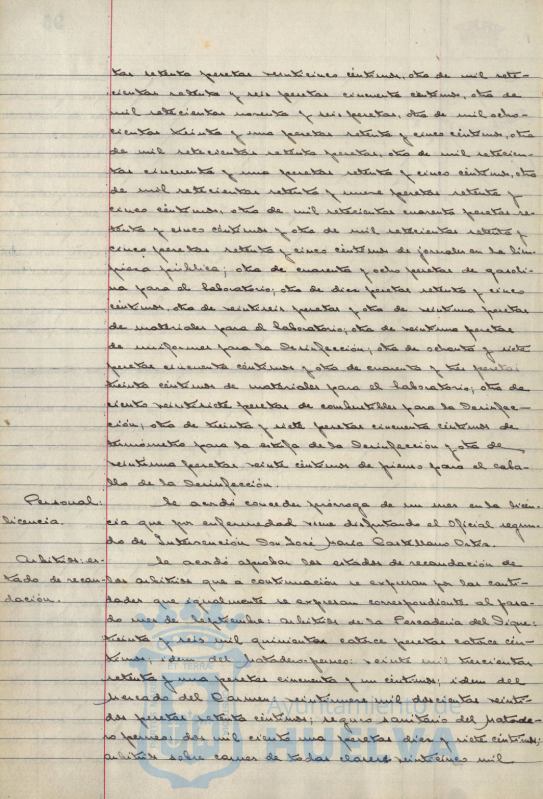 tas setenta pesetas veinticinco céntimos, otra de mil sete-
cientas setenta y seis pesetas cincuenta céntimos, otra de
mil setecientas noventa y seis pesetas, otra de mil ocho-
cientas treinta y una pesetas setenta y cinco céntimos, otra
de mil setecientas setenta pesetas, otra de mil setecien-
tas cincuenta y una pesetas setenta y cinco céntimos, otra
de mil setecientas setenta y nueve pesetas setenta y
cinco céntimos, otra de mil setecientas cuarenta pesetas se-
tenta y cinco céntimos y otra de mil setecientas setenta y
cinco pesetas setenta y cinco céntimos de jornales en la lim-
pieza pública; otra de cuarenta y ocho pesetas de gasoli-
na para el laboratorio; otra de diez pesetas setenta y cinco
céntimos, otra de veintiseis pesetas y otra de veintiuna pesetas
de materiales para el laboratorio; otra de veintiuna pesetas
de uniformes para la Desinfección; otra de ochenta y siete
pesetas cincuenta céntimos y otra de cuarenta y tres pesetas
treinta céntimos de materiales para el laboratorio; otra de
ciento veintisiete pesetas de combustibles para la Desinfec-
ción; otra de treinta y siete pesetas cincuenta céntimos de
termómetro para la estufa de la Desinfección y otra de
veintiuna pesetas veinte céntimos de pienso para el caba-
llo de la Desinfección.
Personal: Se acordó conceder prórroga de un mes en la licen-
licencia. cia que por enfermedad viene disfrutando el Oficial segun-
do de Intervención Don José María Castellano Ortiz.
Arbitrios: es- Se acordó aprobar los estados de recaudación de
tado de recau- los arbitrios que a continuación se expresan por las canti-
dación. dades que igualmente se expresan correspondiente al pasa-
do mes de Septiembre: arbitrios de la Pescadería del Dique:
treinta y seis mil quinientas catorce pesetas catorce cén-
timos; idem del Matadero-perneo: veinte mil trescientas
setenta y una pesetas cincuenta y un céntimos; idem del
Mercado del Carmen veintinueve mil doscientas veinti-
dos pesetas setenta céntimos; seguro sanitario del Matade-
ro perneo: dos mil ciento una pesetas diez y siete céntimos;
arbitrios sobre carnes de todas clases veinticinco mil
Ayuntamiento de
HUELVA